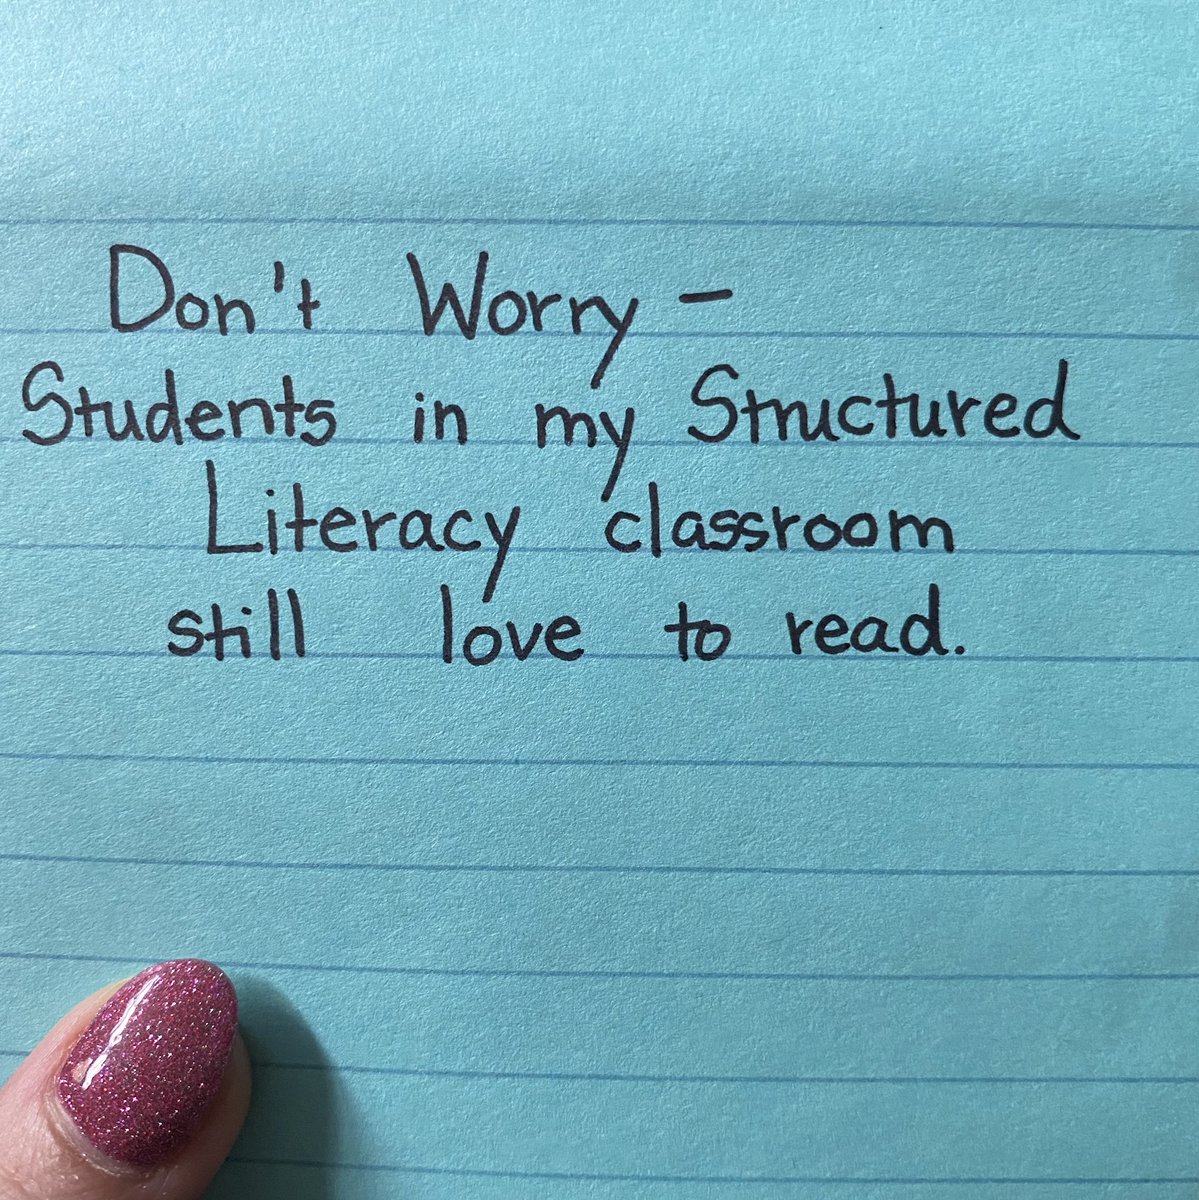 Don't Worry -
Students in my Structured
Literacy classroom
still love to read.